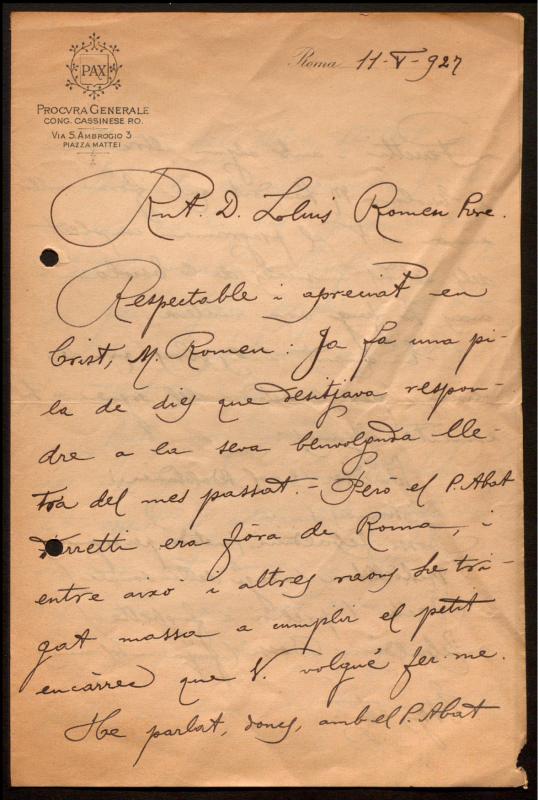 PAX
PROCVRA GENERALE
CONG. CASSINESE P.O.
VIA S. AMBROGIO 3
PIAZZA MATTEI
Roma 11-V-927
Rnt. D. Lluis Romeu Pvre.
Respectable i apreciat en
Crist, M. Romeu: Ja fa una pi-
la de dies que desitjava respon-
dre a la seva benvolguda lle-
tra del mes passat. - Pero el P. Abat
Ferretti era fòra de Roma, i
entre aixó i altres raons he tri-
gat massa a cumplir el petit
encàrrec que V. volgué fer-me.
He parlat, doncs, amb el P. Abat